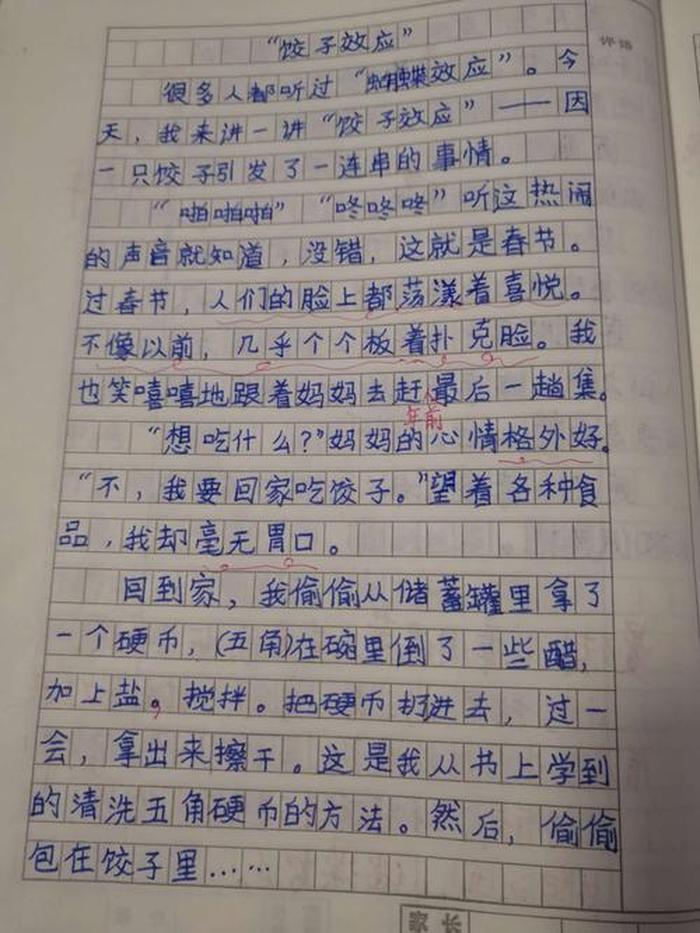 “饺子效应”
很多人都听过“蝴蝶效应”。今
天，我来讲一讲“饺子效应”——因
一只饺子引发了一连串的事情。
“啪啪啪”“咚咚咚”听这热闹
的声音就知道，没错，这就是春节。
过春节，人们的脸上都荡漾着喜悦。
不像以前，几乎个个板着扑克脸。我
也笑嘻嘻地跟着妈妈去赶最后一趟集。
年前
“想吃什么？”妈妈的心情格外好。
“不，我要回家吃饺子。”望着各种食
品，我却毫无胃口。
回到家，我偷偷从储蓄罐里拿了
一个硬币，（五角）在碗里倒了一些醋，
加上盐。搅拌。把硬币扔进去，过一
会，拿出来擦干。这是我从书上学到
的清洗五角硬币的方法。然后，偷偷
包在饺子里……
家长